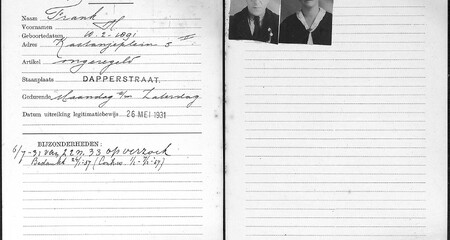 Naam Frank
Voornamen H
Geboortedatum 10-2-1891
Adres Kastanjeplein 5 III
Artikel ongeregeld
Staanplaats DAPPERSTRAAT.
Gedurende Maandag t/m Zaterdag
Datum uitreiking legitimatiebewijs 26 MEI 1931
BIJZONDERHEDEN:
6/7-31 van 22 n. 33 op verzoek
Bedankt